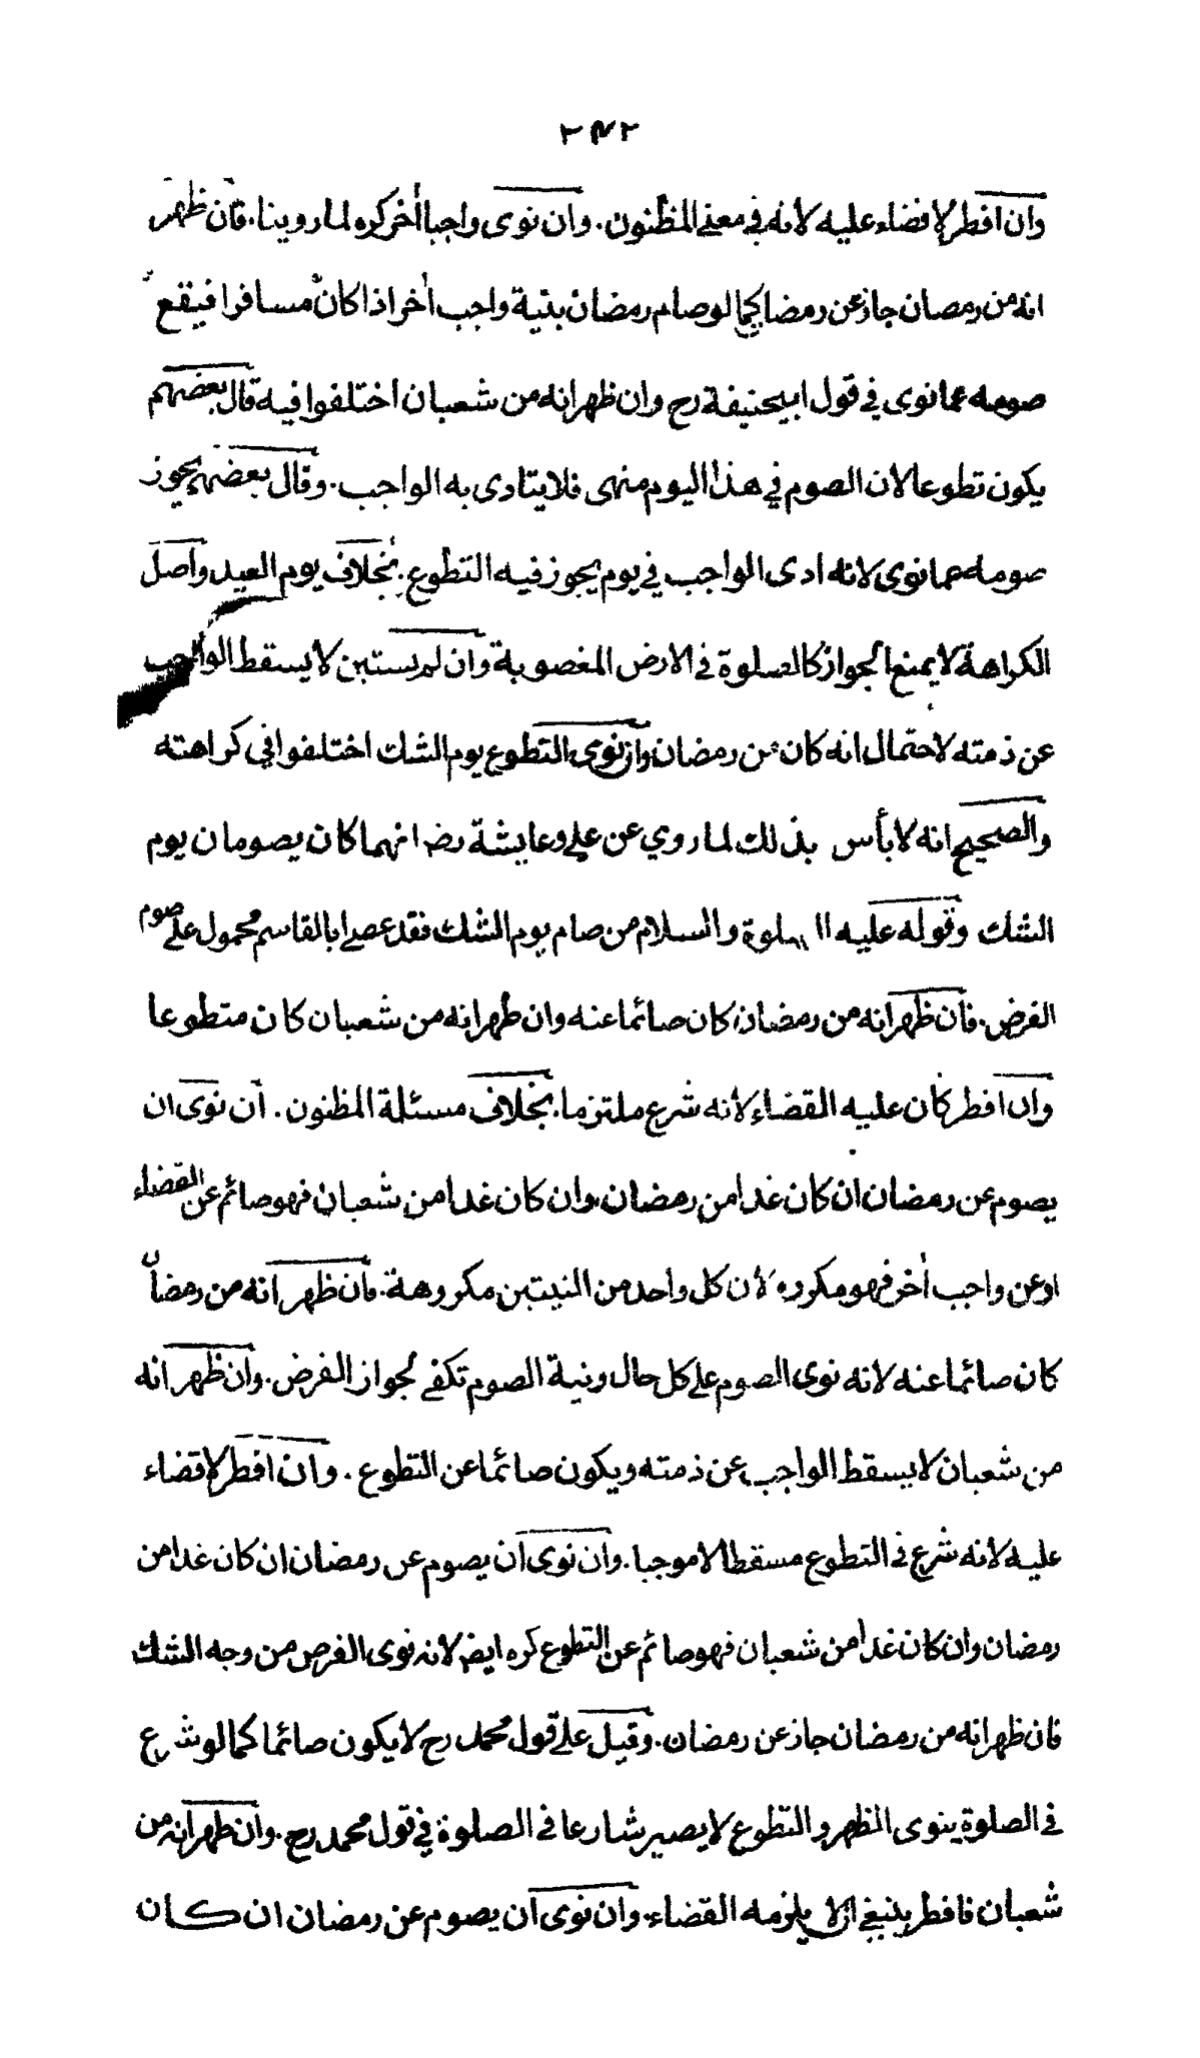 ٢٤٢
وان افطر لاقضاء عليه لانه في معنى المظنون . وان نوى واجبا أخر كره لما روينا . فان ظهر
انه من رمضان جاز عن رمضان كما لو صام رمضان بنية واجب أخر اذا كان مسافرا فيقع
صومه عما نوى في قول ابيحنيفة رح وان ظهر انه من شعبان اختلفوا فيه قال بعضهم
يكون تطوعا لان الصوم في هذا اليوم منهى فلا يتادى به الواجب . وقال بعضهم يجوز
صومه عما نوى لانه ادى الواجب في يوم يجوز فيه التطوع . بخلاف يوم العيد واصل
الكراهة لا يمنع الجواز كالصلوة في الارض المغصوبة وان لم يستبن لا يسقط الواجب
عن ذمته لاحتمال انه كان من رمضان وان نوى التطوع يوم الشك اختلفوا في كراهته
والصحيح انه لا بأس بذلك لما روي عن علي وعايشة رضـ انهما كان يصومان يوم
الشك وقوله عليه الصلوة والسلام من صام يوم الشك فقد عصى ابا القاسم محمول على صوم
الفرض . فان ظهر انه من رمضان كان صائما عنه وان ظهر انه من شعبان كان متطوعا
وان افطر كان عليه القضاء لأنه شرع ملتزما . بخلاف مسئلة المظنون . ان نوى ان
يصوم عن رمضان ان كان غدا من رمضان وان كان غدا من شعبان فهو صائم عن القضاء
او عن واجب أخر فهو مكروه لأن كل واحد من النيتين مكروهة . فان ظهر انه من رمضان
كان صائما عنه لانه نوى الصوم على كل حال ونية الصوم تكفي لجواز الفرض . وان ظهر انه
من شعبان لا يسقط الواجب عن ذمته ويكون صائما عن التطوع . وان افطر لاقضاء
عليه لانه شرع في التطوع مسقطا لا موجبا . وان نوى ان يصوم عن رمضان ان كان غدا من
رمضان وان كان غدا من شعبان فهو صائم عن التطوع كره ايضـ لانه نوى الفرض من وجه الشك
فان ظهر انه من رمضان جاز عن رمضان . وقيل على قول محمد رح لا يكون صائما كما لو شرع
في الصلوة ينوى الظهر و التطوع لا يصير شارعا في الصلوة في قول محمد رح . وان ظهر انه من
شعبان فافطر ينبغي ان لا يلزمه القضاء . وان نوى ان يصوم عن رمضان ان كان